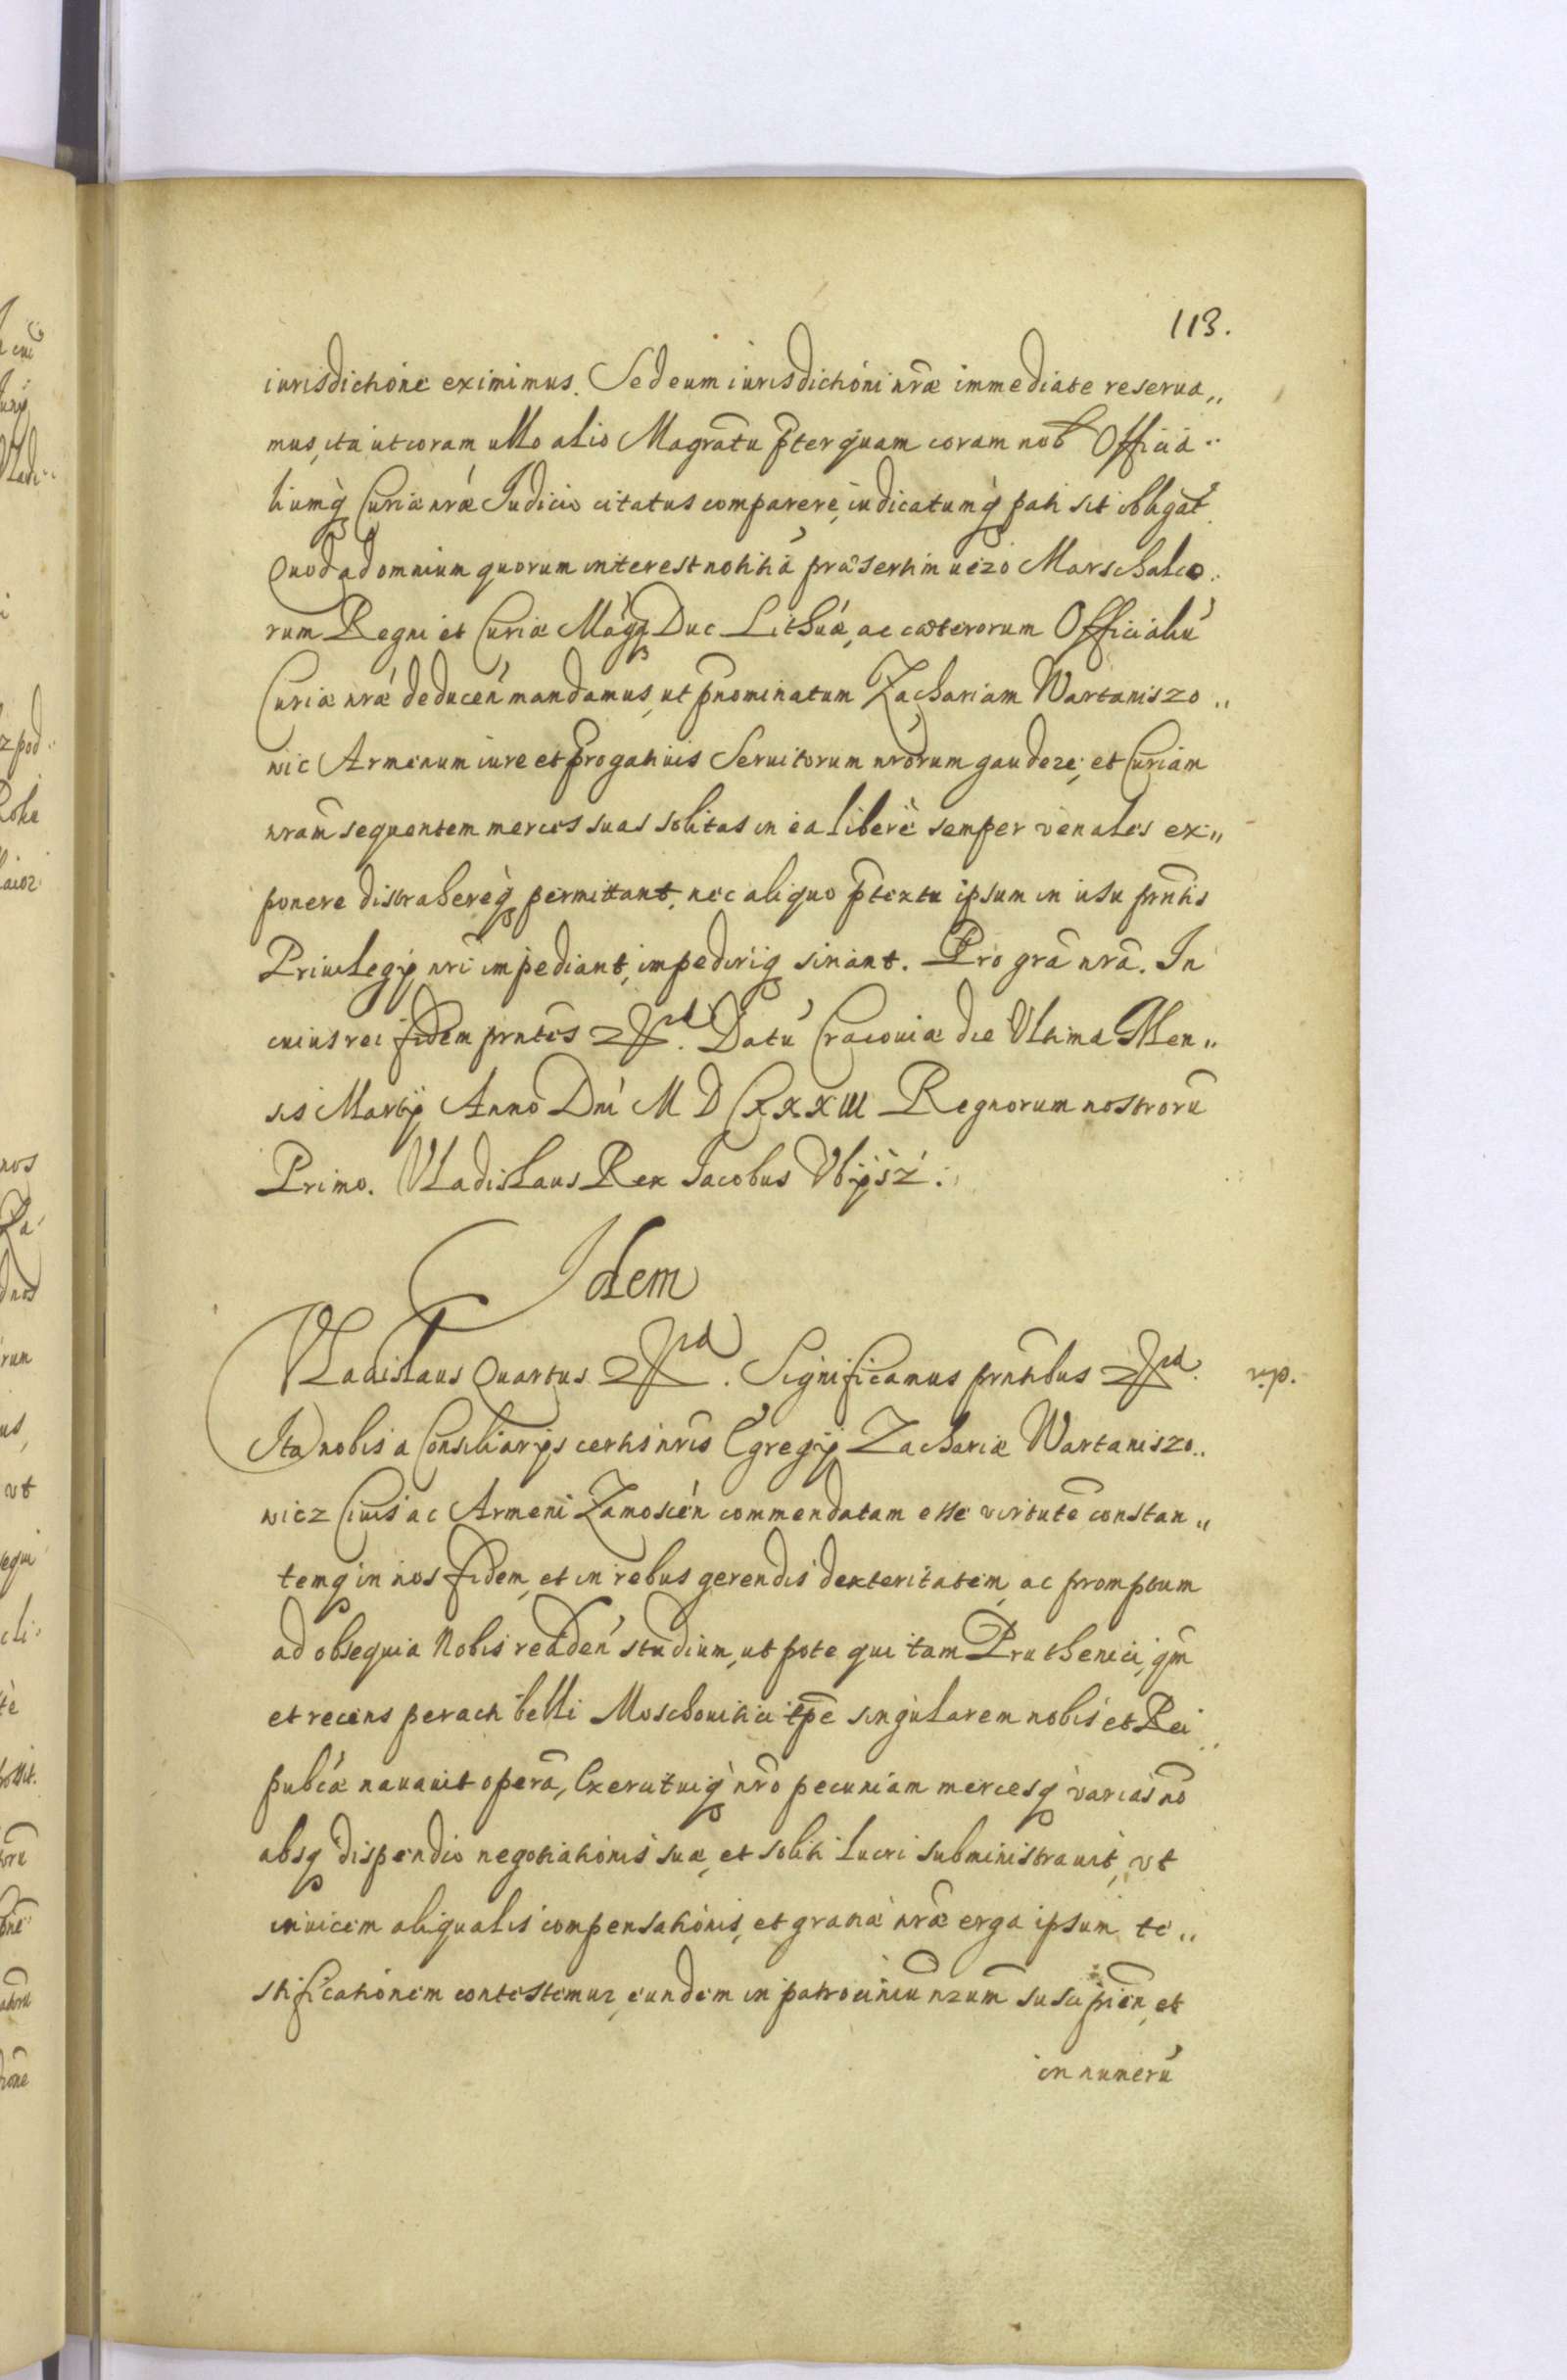 113.
iurisdictione eximimus. Sed eum iurisdictioni nr̃æ immediate reserua„
mus, ita ut coram ullo alio Magratu p̃terquam coram nob Officia„
liumq́ Curiæ nræ Iudicio citatus comparere, iudicatumq́ pati sit obligat
Quod ad omnium quorum interest notitiã præsertim uero Marschalco„
rum Regni et Curiæ Mag̃q Duc Lithuæ, ac cæterorum Officialiũ
Curiæ nræ deducen mandamus, ut p̃nominatum Zachariam Wartaniszo„
wic Armenum iure et p̃rogatiuis Seruitorum nrõrum gaudere, et Curiam
nram̃ sequentem merces suas solitas in ea liberè semper venales ex„
ponere distrahereq́ permittant, nec aliquo p̃textu ipsum in usu prñtis
Priuilegÿ nri impediant, impediriq́ sinant. Pro grã nrã. In
cuius rei fidem prñtes &rd. Datũ Cracouiæ die Vltima Men„
sis Martÿ Anno Dni M D CXXXIII Regnorum nostrorũ
Primo. Vladislaus Rex Iacobus Vbÿsz:
Idem
Vladislaus Quartus &rd. Significamus prñtibus &rd. r.p.
Ita nobis a Consiliarÿs certis nris Egregÿ Zachariæ Wartaniszo„
wicz Ciuis ac Armeni Zamoscen commendatam esse virtutẽ constan„
temq́ in nos fidem, et in rebus gerendis dexteritatem, ac promptum
ad obsequia Nobis redden studium, ut pote qui tam Pruthenici, qm̃
et recens peracti belli Moschouitici tp̃e singularem nobis et Rei
pubcæ nauauit operã, Exercituiq́ nrõ pecuniam mercesq́ varias nõ
absq́ dispendio negotiationis suæ, et soliti lucri subministrauit, vt
inuicem aliqualis compensationis, et gratiæ nræ erga ipsum te„
stificationem contestemur, eundem in patrociniũ nrum suscipien, et
in numerũ